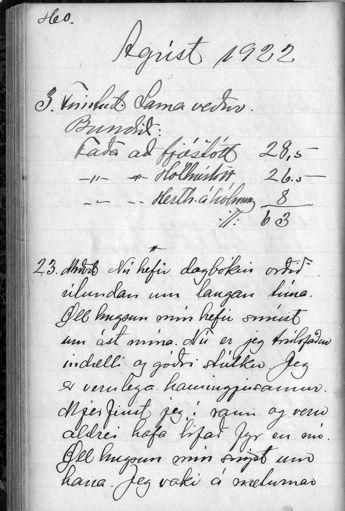 460.
Ágúst 1922
3. Fimtud. Sama veður.
Bundið:
Taða að fjóstótt 28,5
–"– –"– Hóltóttótt 26.5–
–"– –"– Herth. á hólma 8
//: 63
23. Miðst Nú hefir dagbókin orðið
útundan um langan tíma.
Öll hugsun mín hefir snúist
um ást mína. Nú er jeg trúlofaður
indælli og góðri stúlku. Jeg
er verulega hamingjusamur.
Mjer finst jeg í raun og veru
aldrei hafa lifað fyr en nú.
Öll hugsun mín snýst um
hana. Jeg vaki á melunum